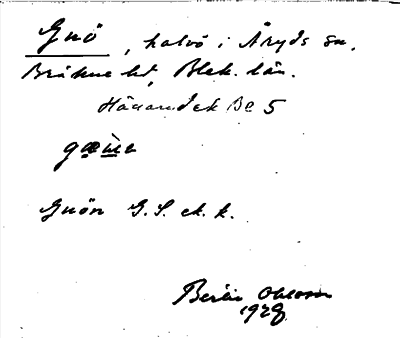 Gnö, halvö i Åryds sn,
Bräkne hd, Blek. län.
Häradsek Be 5
Gnön G.S. ek. k.
Bertil Ohlsson
1929